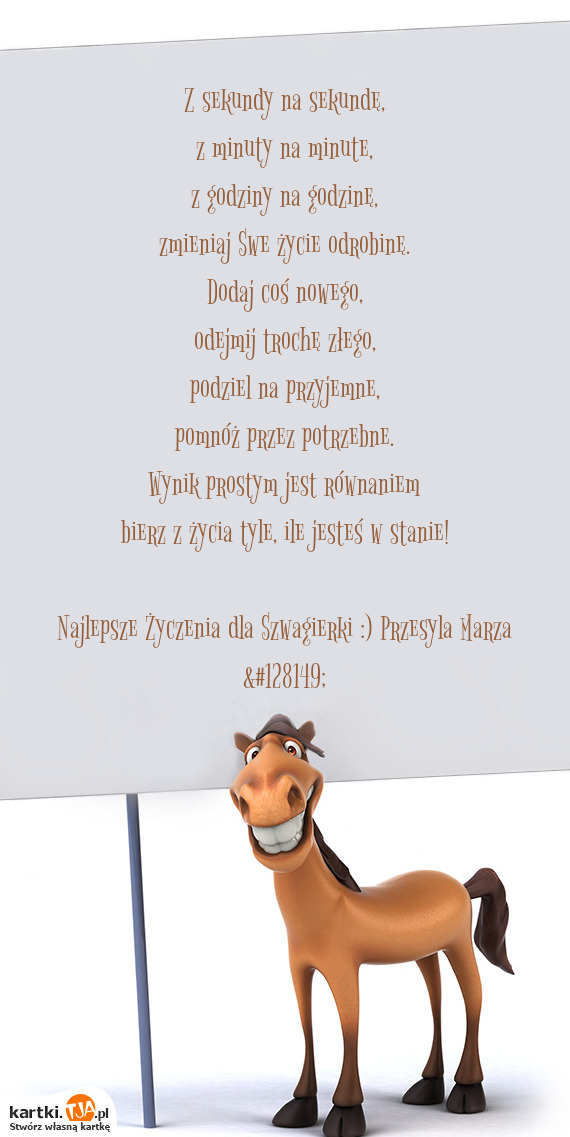 Z sekundy na sekundę,
z minuty na minute,
z godziny na godzinę,
zmieniaj Swe życie odrobinę.
Dodaj coś nowego,
odejmij trochę złego,
podziel na przyjemne,
pomnóż przez potrzebne.
Wynik prostym jest równaniem
bierz z życia tyle, ile jesteś w stanie!
Najlepsze Życzenia dla Szwagierki :) Przesyla Marza
&#128149;
kartki.TJA.pl
Stwórz własną kartkę